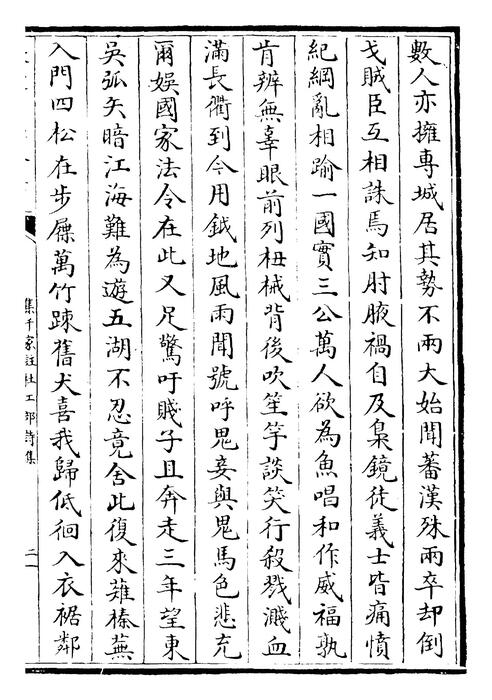 數人亦擁專城居其勢不兩大始聞蕃漢殊兩卒却倒
戈賊臣互相誅焉知肘腋禍自及梟鏡徒義士皆痛憤
紀綱亂相踰一國實三公萬人欲為魚唱和作威福孰
肯辨無辜眼前列杻械背後吹笙竽談笑行殺戮濺血
滿長衢到今用鉞地風雨聞號呼鬼妾與鬼馬色悲充
爾娛國家法令在此又足驚吁賤子且奔走三年望東
吳弧矢暗江海難為遊五湖不忍竟舍此復來薙榛蕪
入門四松在步屧萬竹疎舊犬喜我歸低徊入衣裾鄰
集千家註杜工部詩集
二